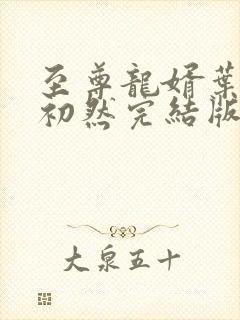 至尊龍婿葉
初然完結版
大泉五十